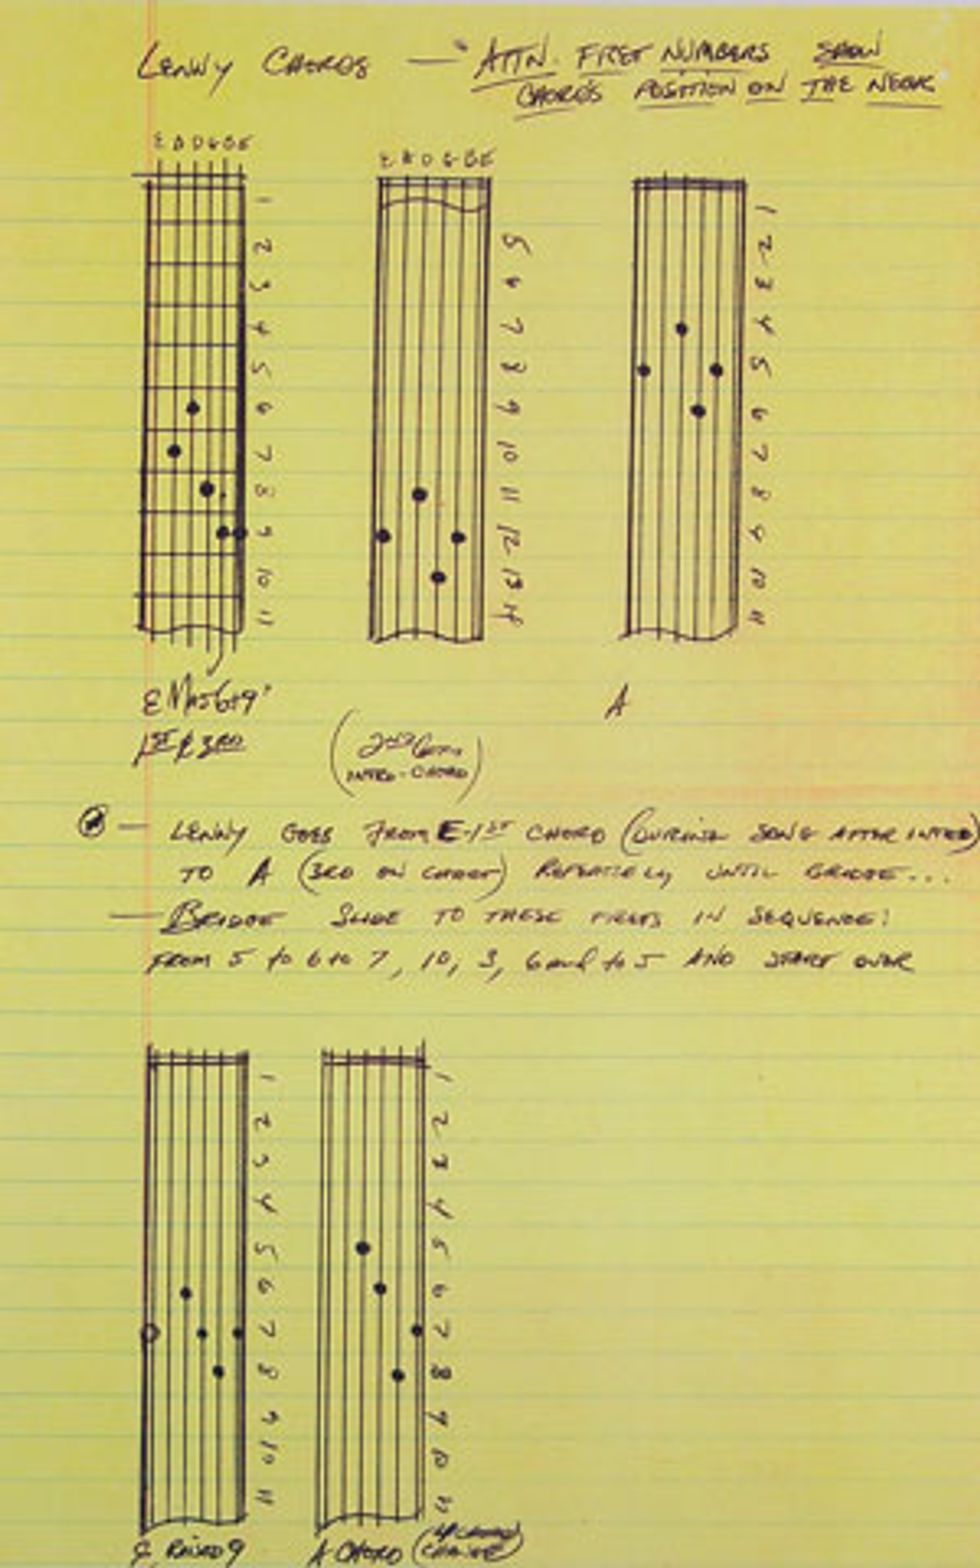 LENNY CHORDS — ATTN. FRET NUMBERS SHOW
CHORDS POSITION ON THE NECK
E A D G B E
E A D G B E
1
2
3
4
5
6
7
8
9
10
11
5
6
7
8
9
10
11
12
13
14
1
2
3
4
5
6
7
8
9
10
11
E MAJ6+9
1ST & 3RD
(2ND
INTRO-CHORD)
A
— LENNY GOES FROM E-1ST CHORD (DURING SONG AFTER INTRO)
TO A (3RD ON CHART) REPEATEDLY UNTIL BRIDGE...
— BRIDGE SLIDE TO THESE FRETS IN SEQUENCE:
FROM 5 to 6 to 7, 10, 3, 6 and to 5 AND START OVER
1
2
3
4
5
6
7
8
9
10
11
1
2
3
4
5
6
7
8
9
10
11
RAISED 9
A CHORD